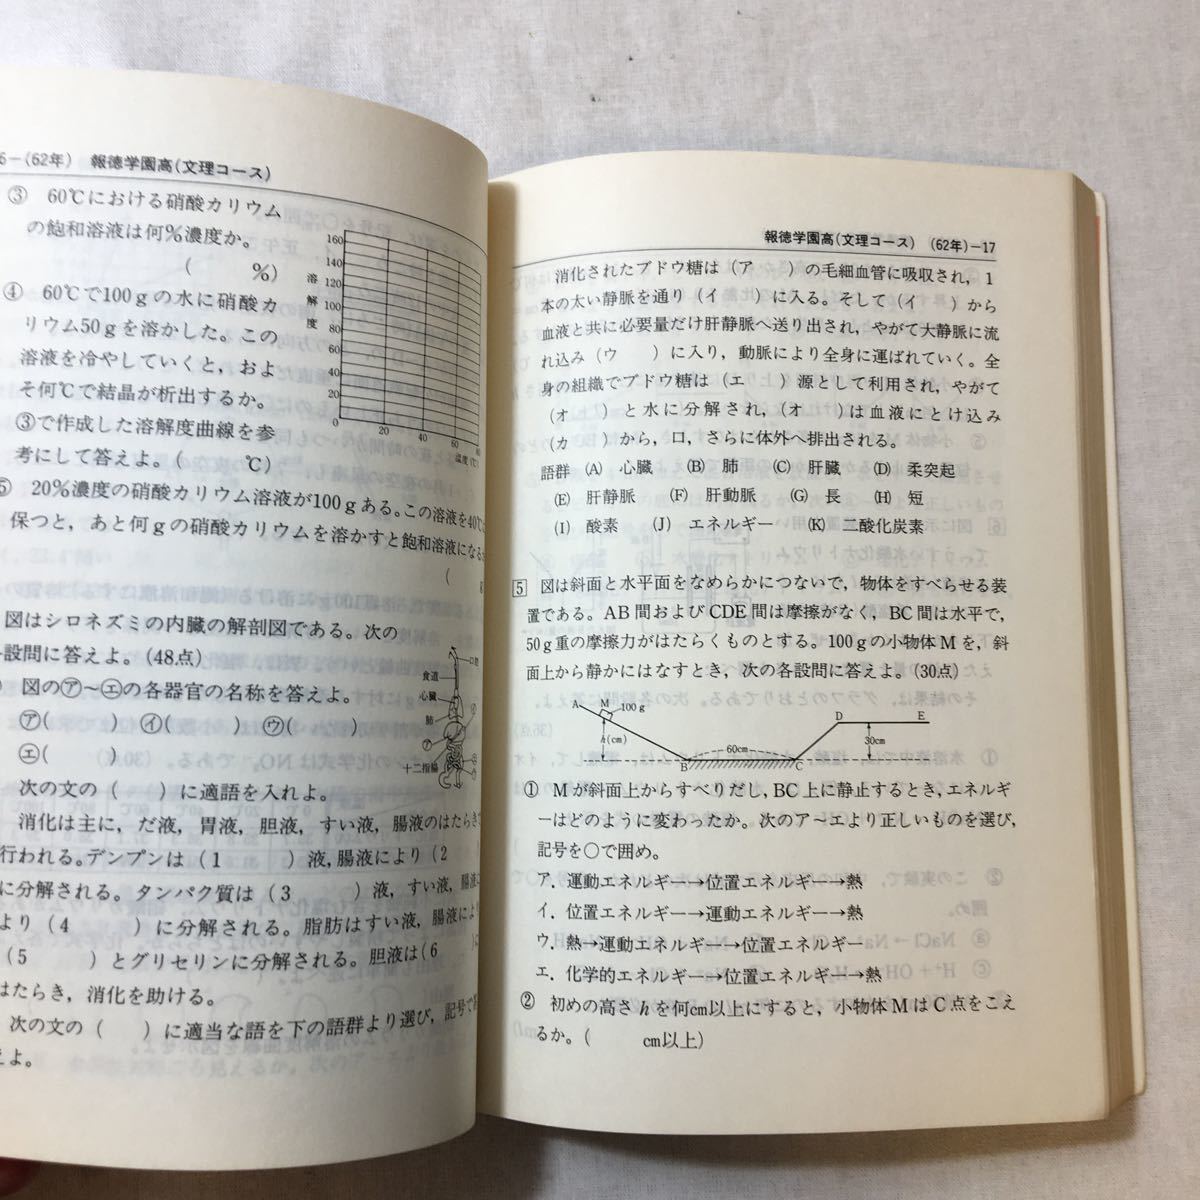 6－(62年) 報徳学園高(文理コース)
③ 60℃における硝酸カリウム
の飽和溶液は何%濃度か。
( %)
④ 60℃で100gの水に硝酸カ
リウム50gを溶かした。この
溶液を冷やしていくと，およ
そ何℃で結晶が析出するか。
③で作成した溶解度曲線を参
考にして答えよ。( ℃)
160
140
120
100
80
60
40
20
0
溶解度
20 40 60
温度(℃)
⑤ 20%濃度の硝酸カリウム溶液が100gある。この溶液を40℃
保つと，あと何gの硝酸カリウムを溶かすと飽和溶液になる
(
図はシロネズミの内臓の解剖図である。次の
設問に答えよ。(48点)
図の㋐～㋓の各器官の名称を答えよ。
㋐( ) ㋑( ) ㋒( )
㋓( )
口
食道
心臓
肺
十二指腸
次の文の( )に適語を入れよ。
消化は主に，だ液，胃液，胆液，すい液，腸液のはたらき
行われる。デンプンは(1 )液,腸液により(2
に分解される。タンパク質は(3 )液，すい液，腸液
より(4 )に分解される。脂肪はすい液，腸液
(5 )とグリセリンに分解される。胆液は(6
はたらき，消化を助ける。
次の文の( )に適当な語を下の語群より選び，記号で
えよ。
報徳学園高(文理コース) (62年)－17
消化されたブドウ糖は(ア )の毛細血管に吸収され，1
本の太い静脈を通り(イ )に入る。そして(イ )から
血液と共に必要量だけ肝静脈へ送り出され，やがて大静脈に流
れ込み(ウ )に入り，動脈により全身に運ばれていく。全
身の組織でブドウ糖は(エ )源として利用され，やがて
(オ )と水に分解され，(オ )は血液にとけ込み
(カ )から，口，さらに体外へ排出される。
語群 (A) 心臓 (B) 肺 (C) 肝臓 (D) 柔突起
(E) 肝静脈 (F) 肝動脈 (G) 長 (H) 短
(I) 酸素 (J) エネルギー (K) 二酸化炭素
5 図は斜面と水平面をなめらかにつないで，物体をすべらせる装
置である。AB間およびCDE間は摩擦がなく，BC間は水平で，
50g重の摩擦力がはたらくものとする。100gの小物体Mを，斜
面上から静かにはなすとき，次の各設問に答えよ。(30点)
A M 100g D E
h(cm) 60cm 30cm
B C
① Mが斜面上からすべりだし，BC上に静止するとき，エネルギ
ーはどのように変わったか。次のア～エより正しいものを選び，
記号を○で囲め。
ア．運動エネルギー→位置エネルギー→熱
イ．位置エネルギー→運動エネルギー→熱
ウ．熱→運動エネルギー→位置エネルギー
エ．化学的エネルギー→位置エネルギー→熱
② 初めの高さhを何cm以上にすると，小物体MはC点をこえ
るか。( cm以上)